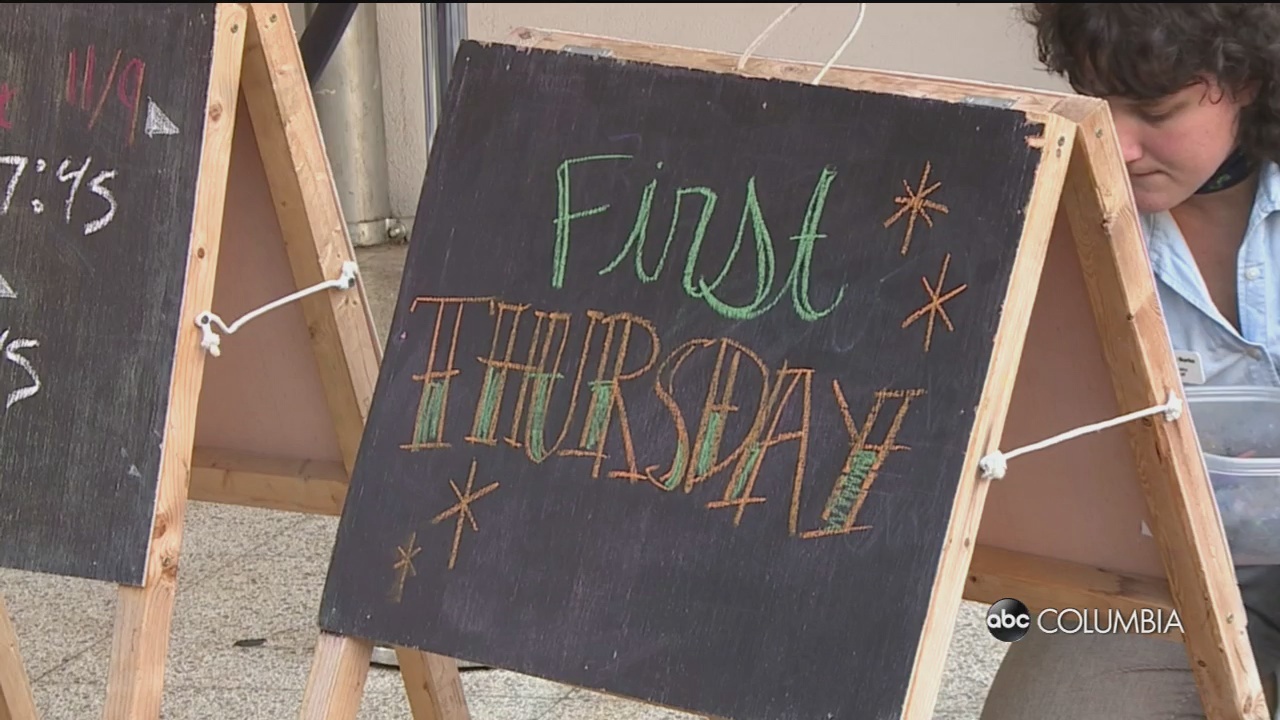 11/9
7:45
45
First
THURSDAY
abc COLUMBIA